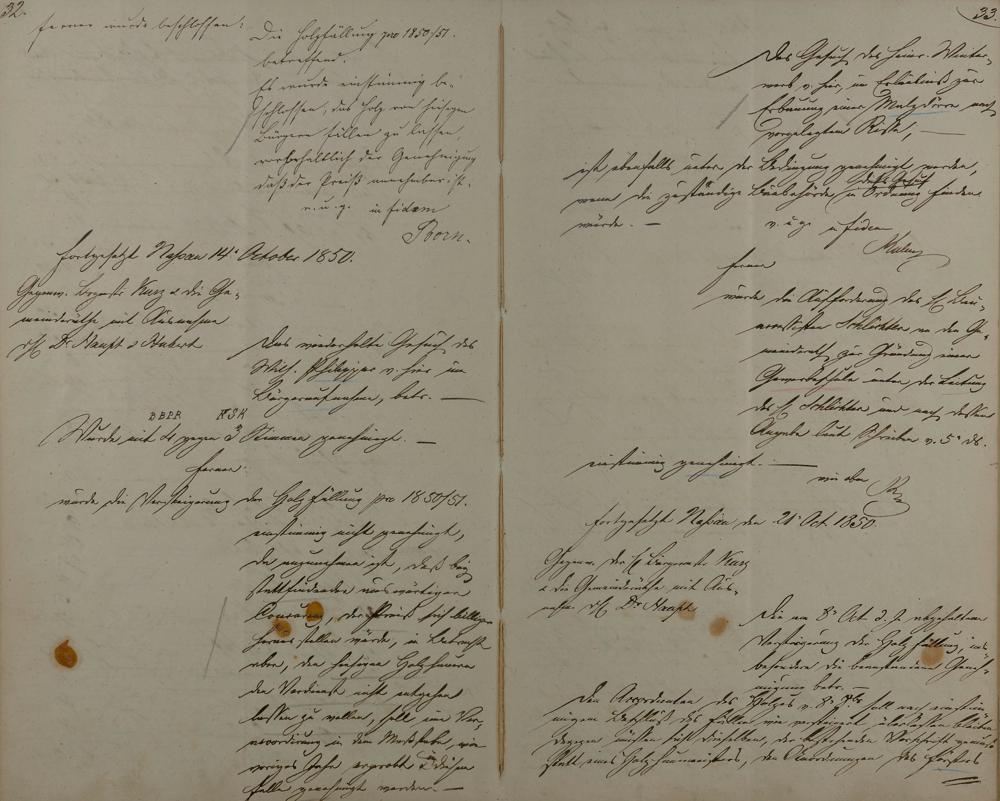 32.
ferner wurde beschlossen:
Die Holzfällung pro 1850/51.
betreffend.
Es wurde einstimmig be-
schlossen, das Holz von hiesigen
Bürgern fällen zu lassen,
vorbehaltlich der Genehmigung
daß der Preiß annehmbar ist.
v. u. g. in fidem
Born.
Fortgesetzt Nassau 14t October 1850.
Gegenw. Bürgmstr Kurz & die Ge-
meinderäthe mit Ausnahme
Dr. Haupt &
Das wiederholte Gesuch des
Wilh. Philippar v. hier um
Bürgeraufnahme, betr. —
Wurde mit 4 gegen 3 Stimmen genehmigt. —
Ferner
wurde die Versteigerung der Holzfällung pro 1850/51.
einstimmig nicht genehmigt,
da anzunehmen ist, daß bei
stattfindender auswärtigen
Concurenz, der Preiß sich billiger
stellen würde, in Betracht
aber, den hiesigen Holzhauern
den Verdienst nicht entgehen
lassen zu wollen, soll eine Ver-
accordirung in dem Maßstabe, wie
voriges Jahr erprobt in diesem
Falle genehmigt werden. —
33.
Das Gesuch des Heinr. Winter-
werb v. hier, um Erlaubniß zur
Erbauung einer Malzdörre nach
vorgelegtem Riße, —
ist ebenfalls unter der Bedingung genehmigt worden,
wenn die zuständige Baubehörde in Ordnung finden
würde. —
v. u. g. in fidem
ferner
wurde die Aufforderung des H. Bau-
Schlichter an den Ge-
meinderath zur Gründung einer
Gewerbeschule unter der Leitung
des H. Schlichter und nach dessen
Angabe laut Schreiben v. 5t ds.
einstimmig genehmigt. —
wie oben
Fortgesetzt Nassau den 21t Oct. 1850.
Gegenw. der H. Bürgermstr Kurz
& die Gemeinderäthe mit Aus-
nahme Dr. Haupt
Die am 8t Oct. d. J. abgehaltene
Versteigerung der Holzfällung, ins-
besondere die Geneh-
migung betr. —
Den Accordanten des Holzes v. 8t soll nach einstim-
migem Beschluß das Fällen wie versteigert überlassen bleiben
dagegen müssen sich dieselben, der bestehenden Vorschrift gemäß
statt eines Holzhauermeisters, den Anordnungen des Försters